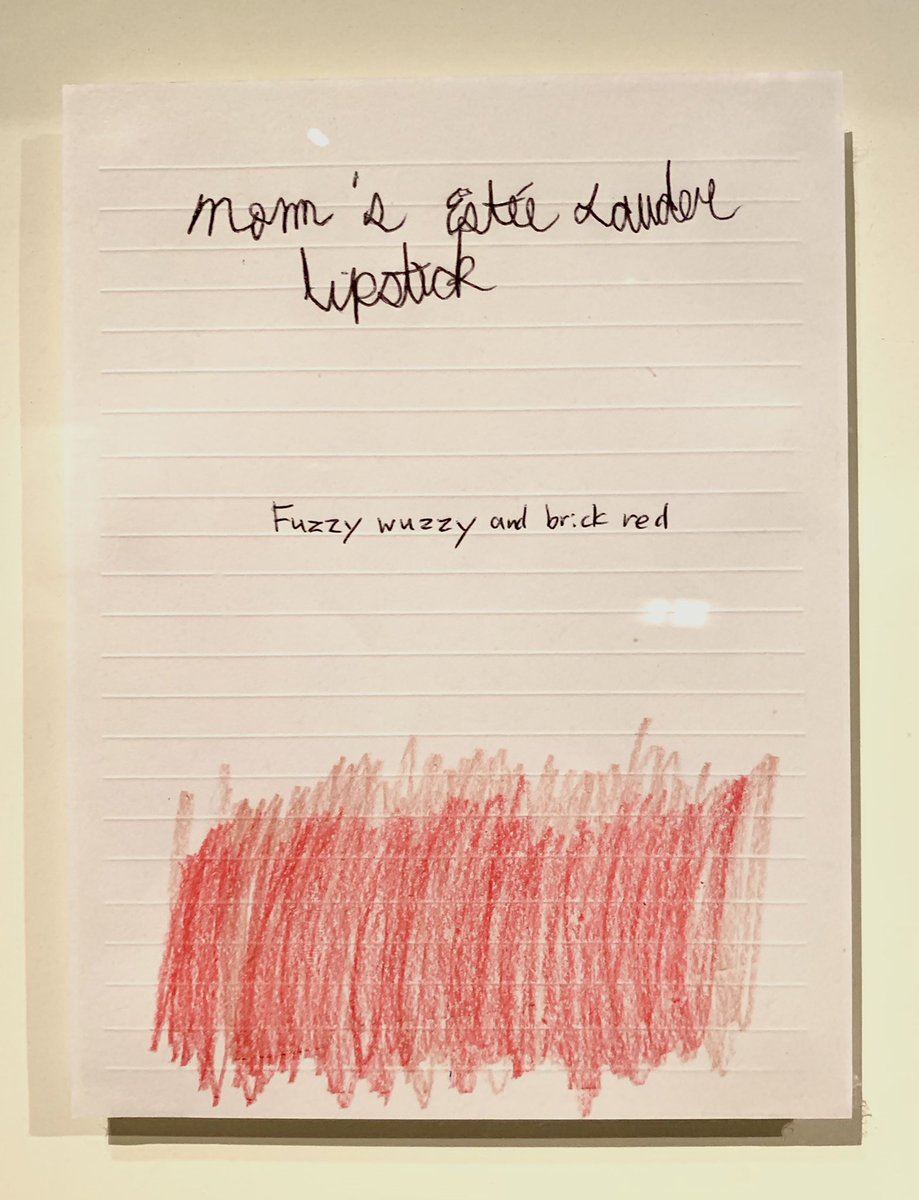 mom's Estée Lauder
lipstick
Fuzzy wuzzy and brick red